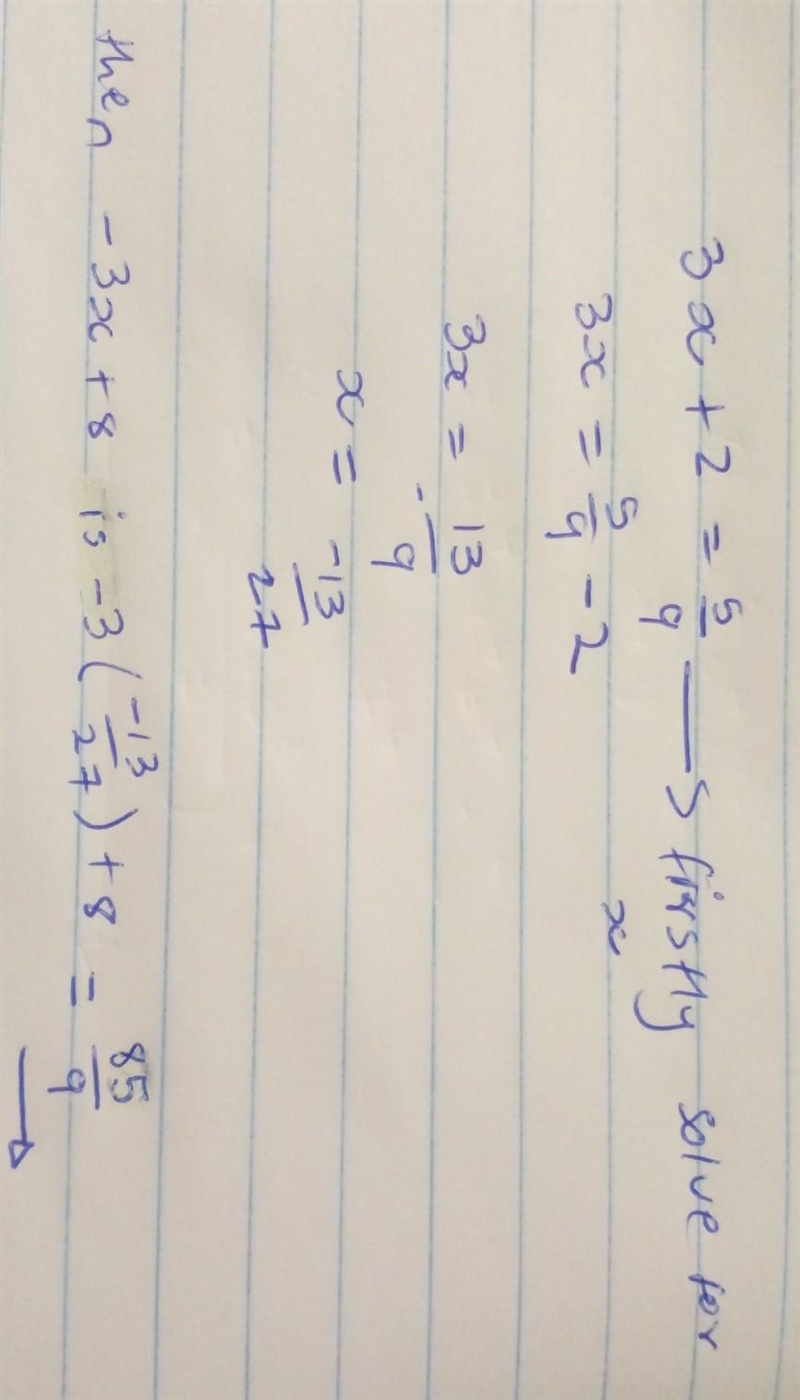 3x + 2 = 5/9 → firstly solve for
x
3x = 5/9 - 2
3x = -13/9
x = -13/27
then -3x + 8 is -3(-13/27) + 8 = 85/9